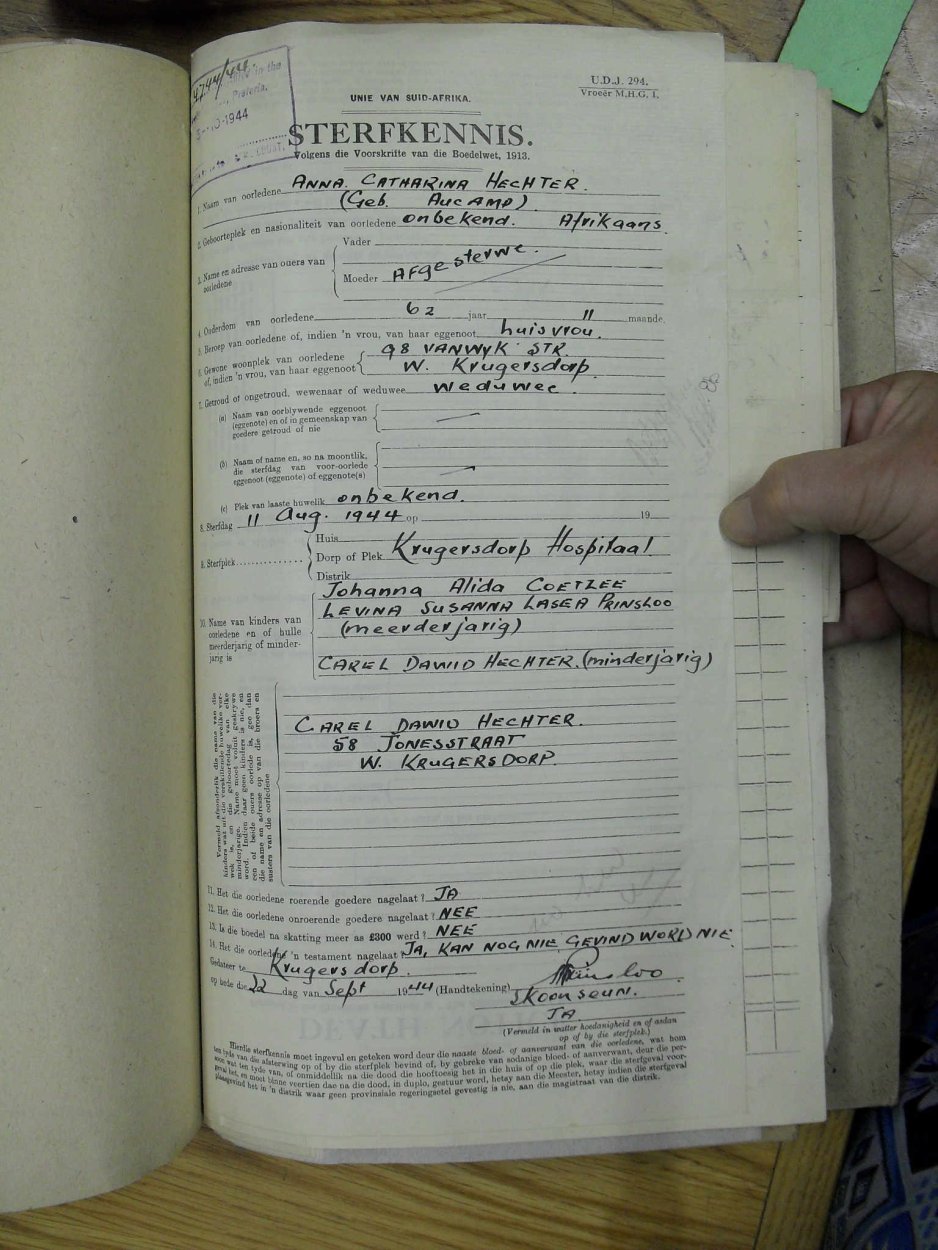 4744/44
in the
Pretoria.
-10-1944
U.D.J. 294.
Vroeër M.H.G. 1.
UNIE VAN SUID-AFRIKA.
STERFKENNIS.
Volgens die Voorskrifte van die Boedelwet, 1913.
1. Naam van oorledene ANNA. CATHARINA HECHTER.
(Geb. AUCAMP)
2. Geboorteplek en nasionaliteit van oorledene onbekend. Afrikaans
3. Name en adresse van ouers van oorledene
Vader
Moeder AFgesterwe.
4. Ouderdom van oorledene 62 jaar 11 maande.
5. Beroep van oorledene of, indien 'n vrou, van haar eggenoot huisvrou.
6. Gewone woonplek van oorledene of, indien 'n vrou, van haar eggenoot
98 VANWYK STR.
W. Krugersdorp
7. Getroud of ongetroud, wewenaar of weduwee weduwee.
(a) Naam van oorblywende eggenoot
(eggenote) en of in gemeenskap van
goedere getroud of nie
(b) Naam of name en, so na moontlik,
die sterfdag van voor-oorlede
eggenoot (eggenote) of eggenote(s)
(c) Plek van laaste huwelik onbekend.
8. Sterfdag 11 Aug. 1944 op 19
9. Sterfplek
Huis
Dorp of Plek Krugersdorp Hospitaal
Distrik
10. Name van kinders van
oorledene en of hulle
meerderjarig of minder-
jarig is
Johanna Alida COETZEE
LEVINA SUSANNA LASEA PRINSLOO
(meerderjarig)
CAREL DAWID HECHTER. (minderjarig)
Vermeld afsonderlik die name van die
kinders wat uit die verskillende huwelike ver-
wek is, en die geboortedag van elke
minderjarige. Name moet voluit geskrywe
word. Indien daar geen kinders is nie, en
een of beide ouers oorlede is, gee dan
die name en adresse op van die broers en
susters van die oorledene
CAREL DAWID HECHTER.
58 JONESSTRAAT
W. KRUGERSDORP.
11. Het die oorledene roerende goedere nagelaat? JA
12. Het die oorledene onroerende goedere nagelaat? NEE
13. Is die boedel na skatting meer as £300 werd? NEE
14. Het die oorledene 'n testament nagelaat? JA, KAN NOG NIE GEVIND WORD NIE.
Gedateer te Krugersdorp.
op hede die 22 dag van Sept 1944 (Handtekening) Prinsloo
SKOONSEUN.
JA
(Vermeld in watter hoedanigheid en of asdan
op of by die sterfplek.)
Hierdie sterfkennis moet ingevul en geteken word deur die naaste bloed- of aanverwant van die oorledene, wat hom
ten tyde van die afsterwing op of by die sterfplek bevind of, by gebreke van sodanige bloed- of aanverwant, deur die per-
soon wat ten tyde van, of onmiddellik na die dood die hooftoesig het in die huis of op die plek, waar die sterfgeval voor-
geval het, en moet binne veertien dae na die dood, in duplo, gestuur word, hetsy aan die Meester, hetsy indien die sterfgeval
plaasgevind het in 'n distrik waar geen provinsiale regeringsetel gevestig is nie, aan die magistraat van die distrik.